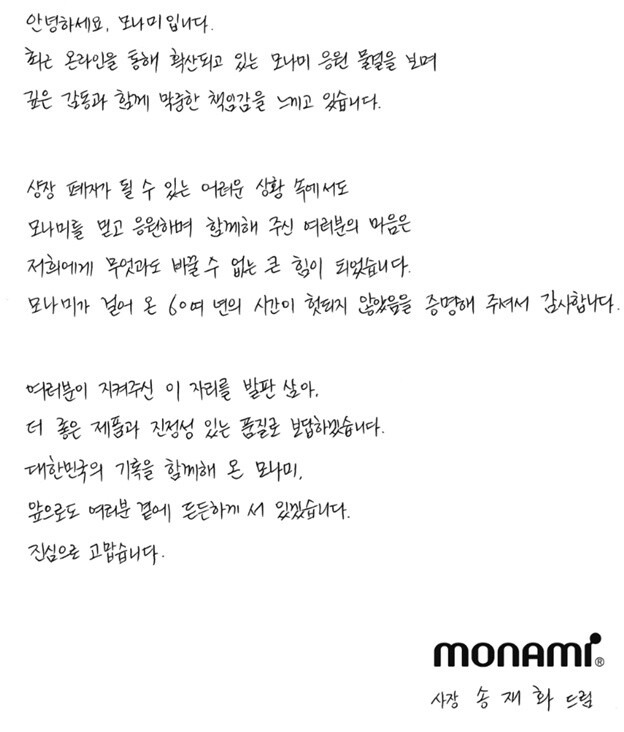 안녕하세요, 모나미입니다.
최근 온라인을 통해 확산되고 있는 모나미 응원 물결을 보며
깊은 감동과 함께 막중한 책임감을 느끼고 있습니다.
상장 폐지가 될 수 있는 어려운 상황 속에서도
모나미를 믿고 응원하며 함께해 주신 여러분의 마음은
저희에게 무엇과도 바꿀 수 없는 큰 힘이 되었습니다.
모나미가 걸어 온 60여 년의 시간이 헛되지 않았음을 증명해 주셔서 감사합니다.
여러분이 지켜주신 이 자리를 발판 삼아,
더 좋은 제품과 진정성 있는 품질로 보답하겠습니다.
대한민국의 기록을 함께해 온 모나미,
앞으로도 여러분 곁에 든든하게 서 있겠습니다.
진심으로 고맙습니다.
monami®
사장 송재화 드림